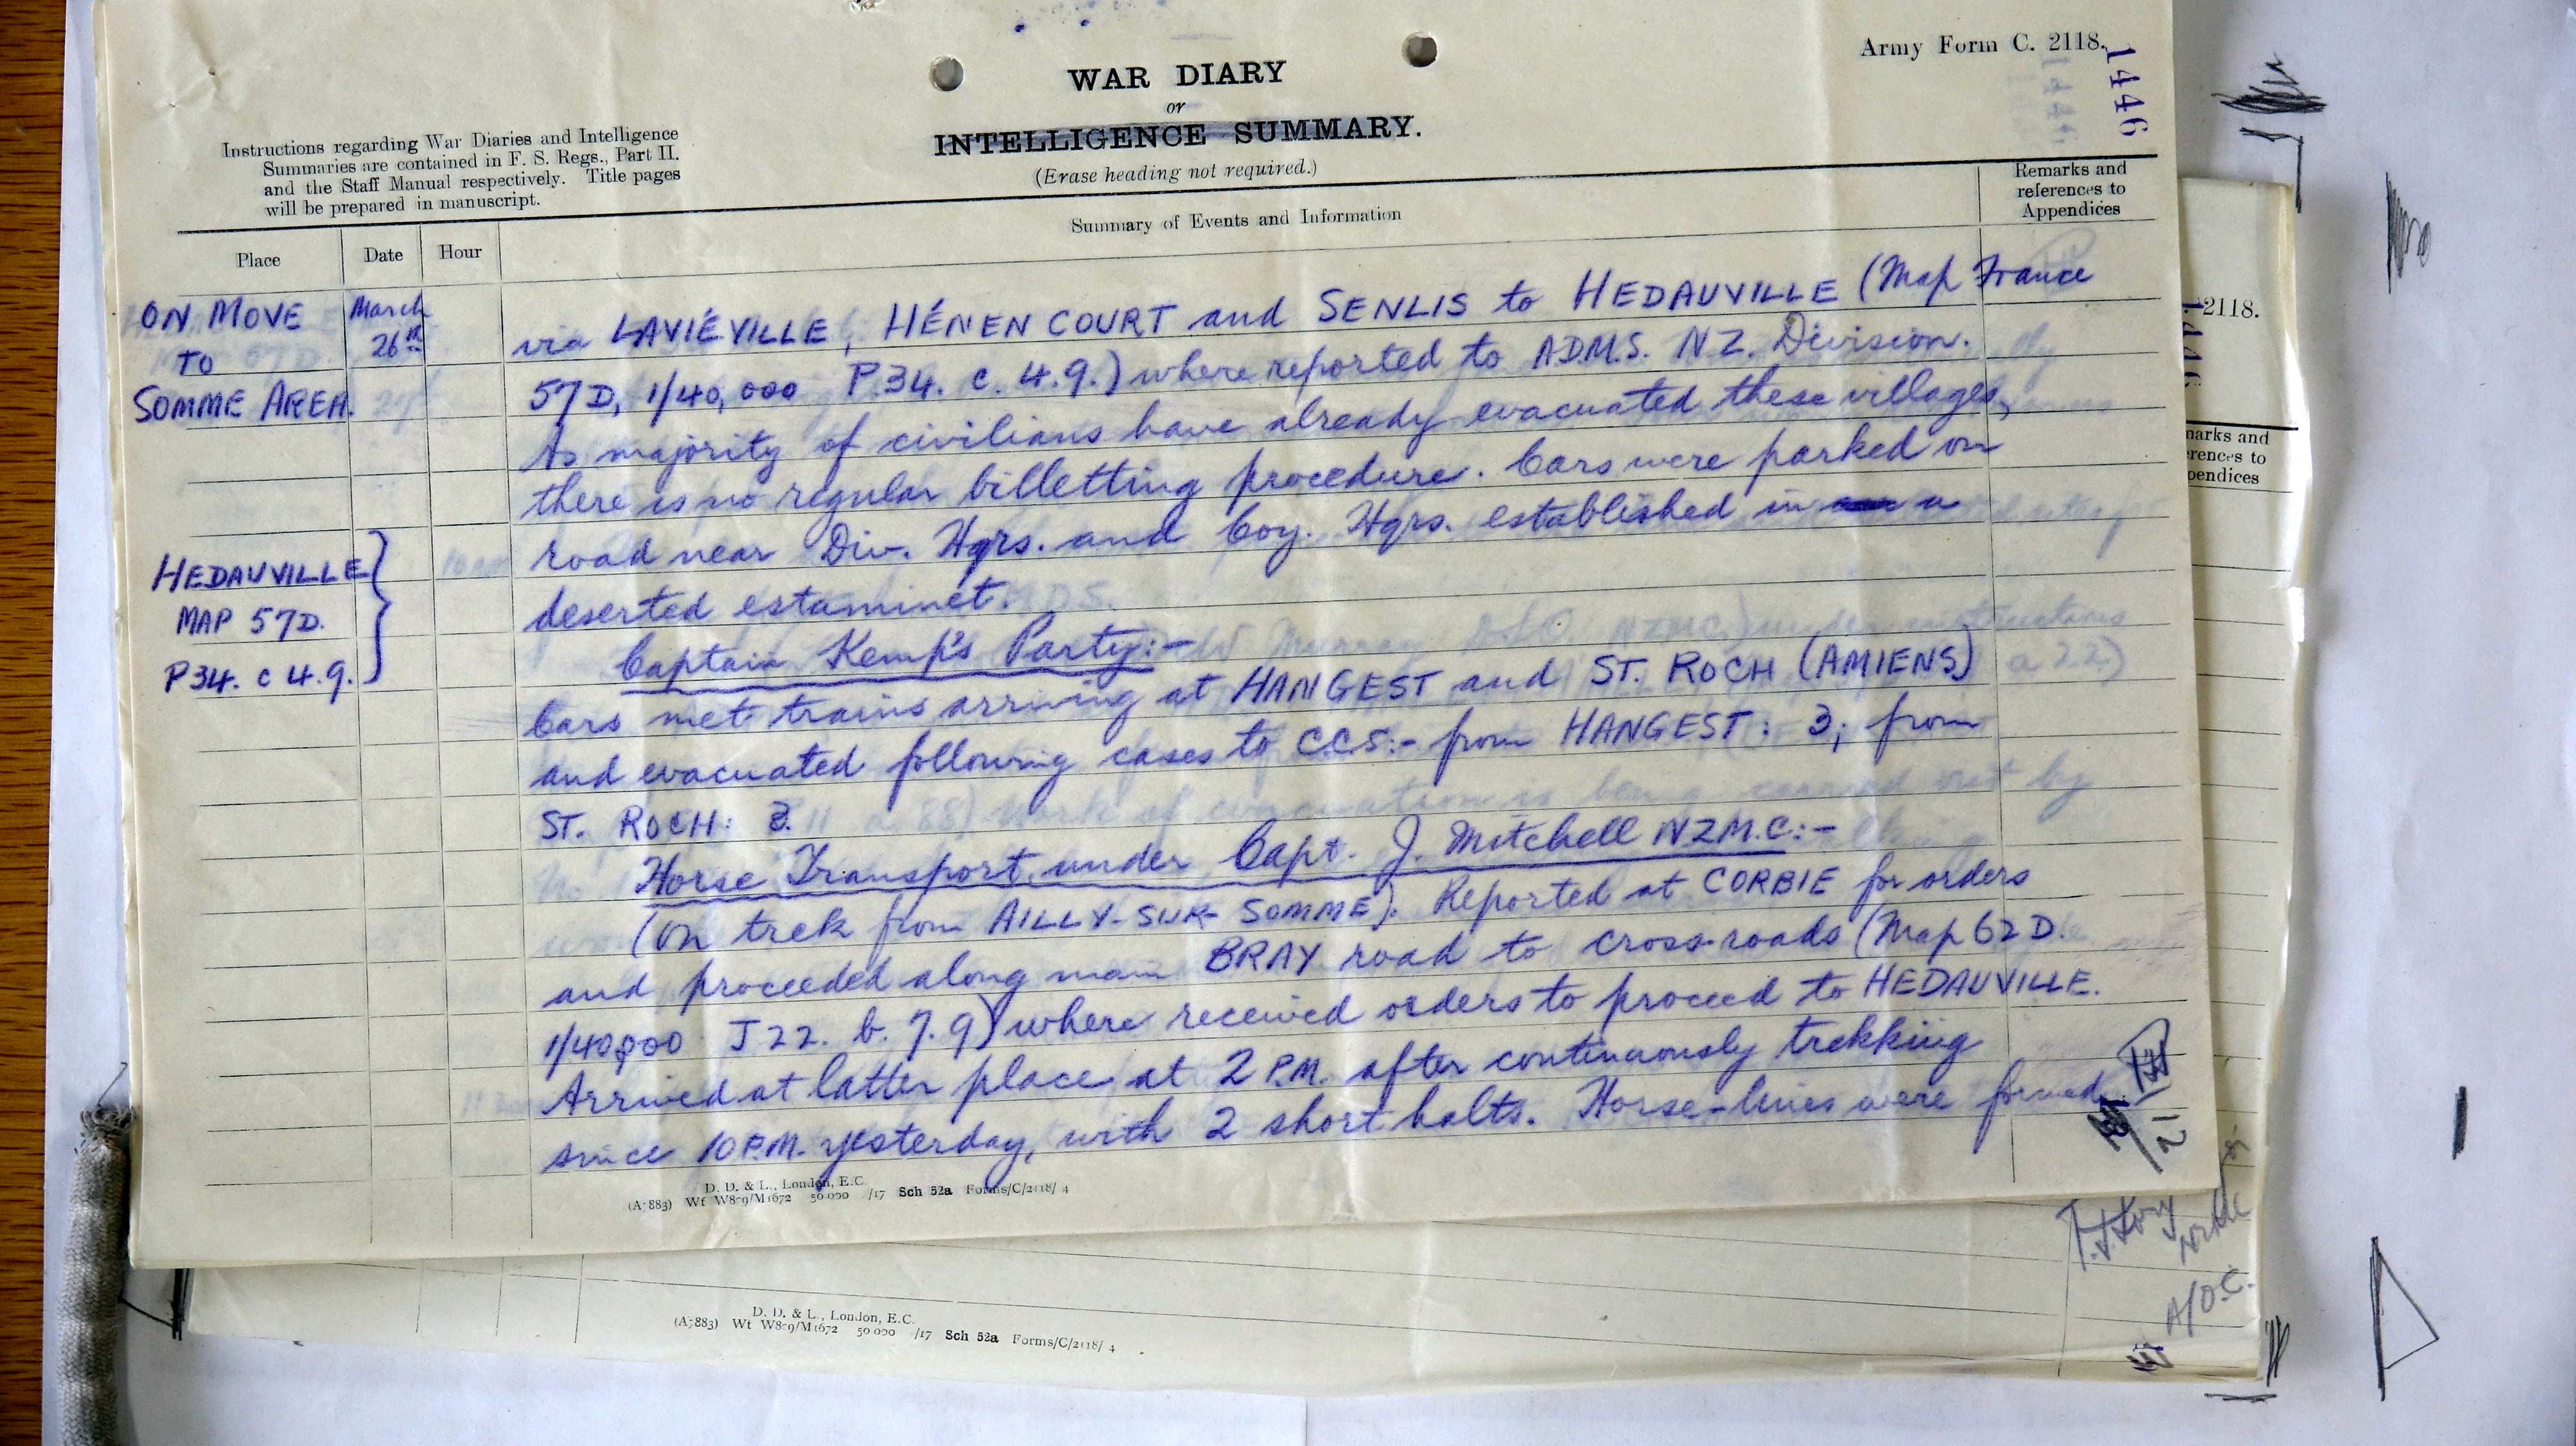 Army Form C. 2118.
1446
WAR DIARY
or
INTELLIGENCE SUMMARY.
(Erase heading not required.)
Instructions regarding War Diaries and Intelligence
Summaries are contained in F. S. Regs., Part II.
and the Staff Manual respectively. Title pages
will be prepared in manuscript.
Place
Date
Hour
Summary of Events and Information
Remarks and
references to
Appendices
ON MOVE
TO
SOMME AREA.
March
26th
via LAVIÉVILLE, HÉNENCOURT and SENLIS to HEDAUVILLE (Map France
57D, 1/40,000 P.34. c. 4.9.) where reported to ADMS. NZ. Division.
As majority of civilians have already evacuated these villages,
there is no regular billetting procedure. Cars were parked on
road near Div. Hqrs. and Coy. Hqrs. established in a
deserted estaminet.
HEDAUVILLE
MAP 57D.
P34. c 4.9.
Captain Kemp's Party:-
Cars met trains arriving at HANGEST and ST. ROCH (AMIENS)
and evacuated following cases to C.C.S:- from HANGEST: 3; from
ST. ROCH: 3.
Horse Transport under Capt. J. Mitchell NZM.C:-
(On trek from AILLY-SUR-SOMME). Reported at CORBIE for orders
and proceeded along main BRAY road to cross-roads (Map 62D.
1/40,000 J22. b. 7.9) where received orders to proceed to HEDAUVILLE.
Arrived at latter place at 2 P.M. after continuously trekking
since 10 P.M. yesterday, with 2 short halts. Horse-lines were formed
12
D. D. & L., London, E.C.
(A7883) Wt W809/M1672 50,000 /17 Sch 52a Forms/C/2118/ 4
2118.
marks and
erences to
pendices
A/O.C.
D. D. & L., London, E.C.
(A7883) Wt W809/M1672 50,000 /17 Sch 52a Forms/C/2118/ 4